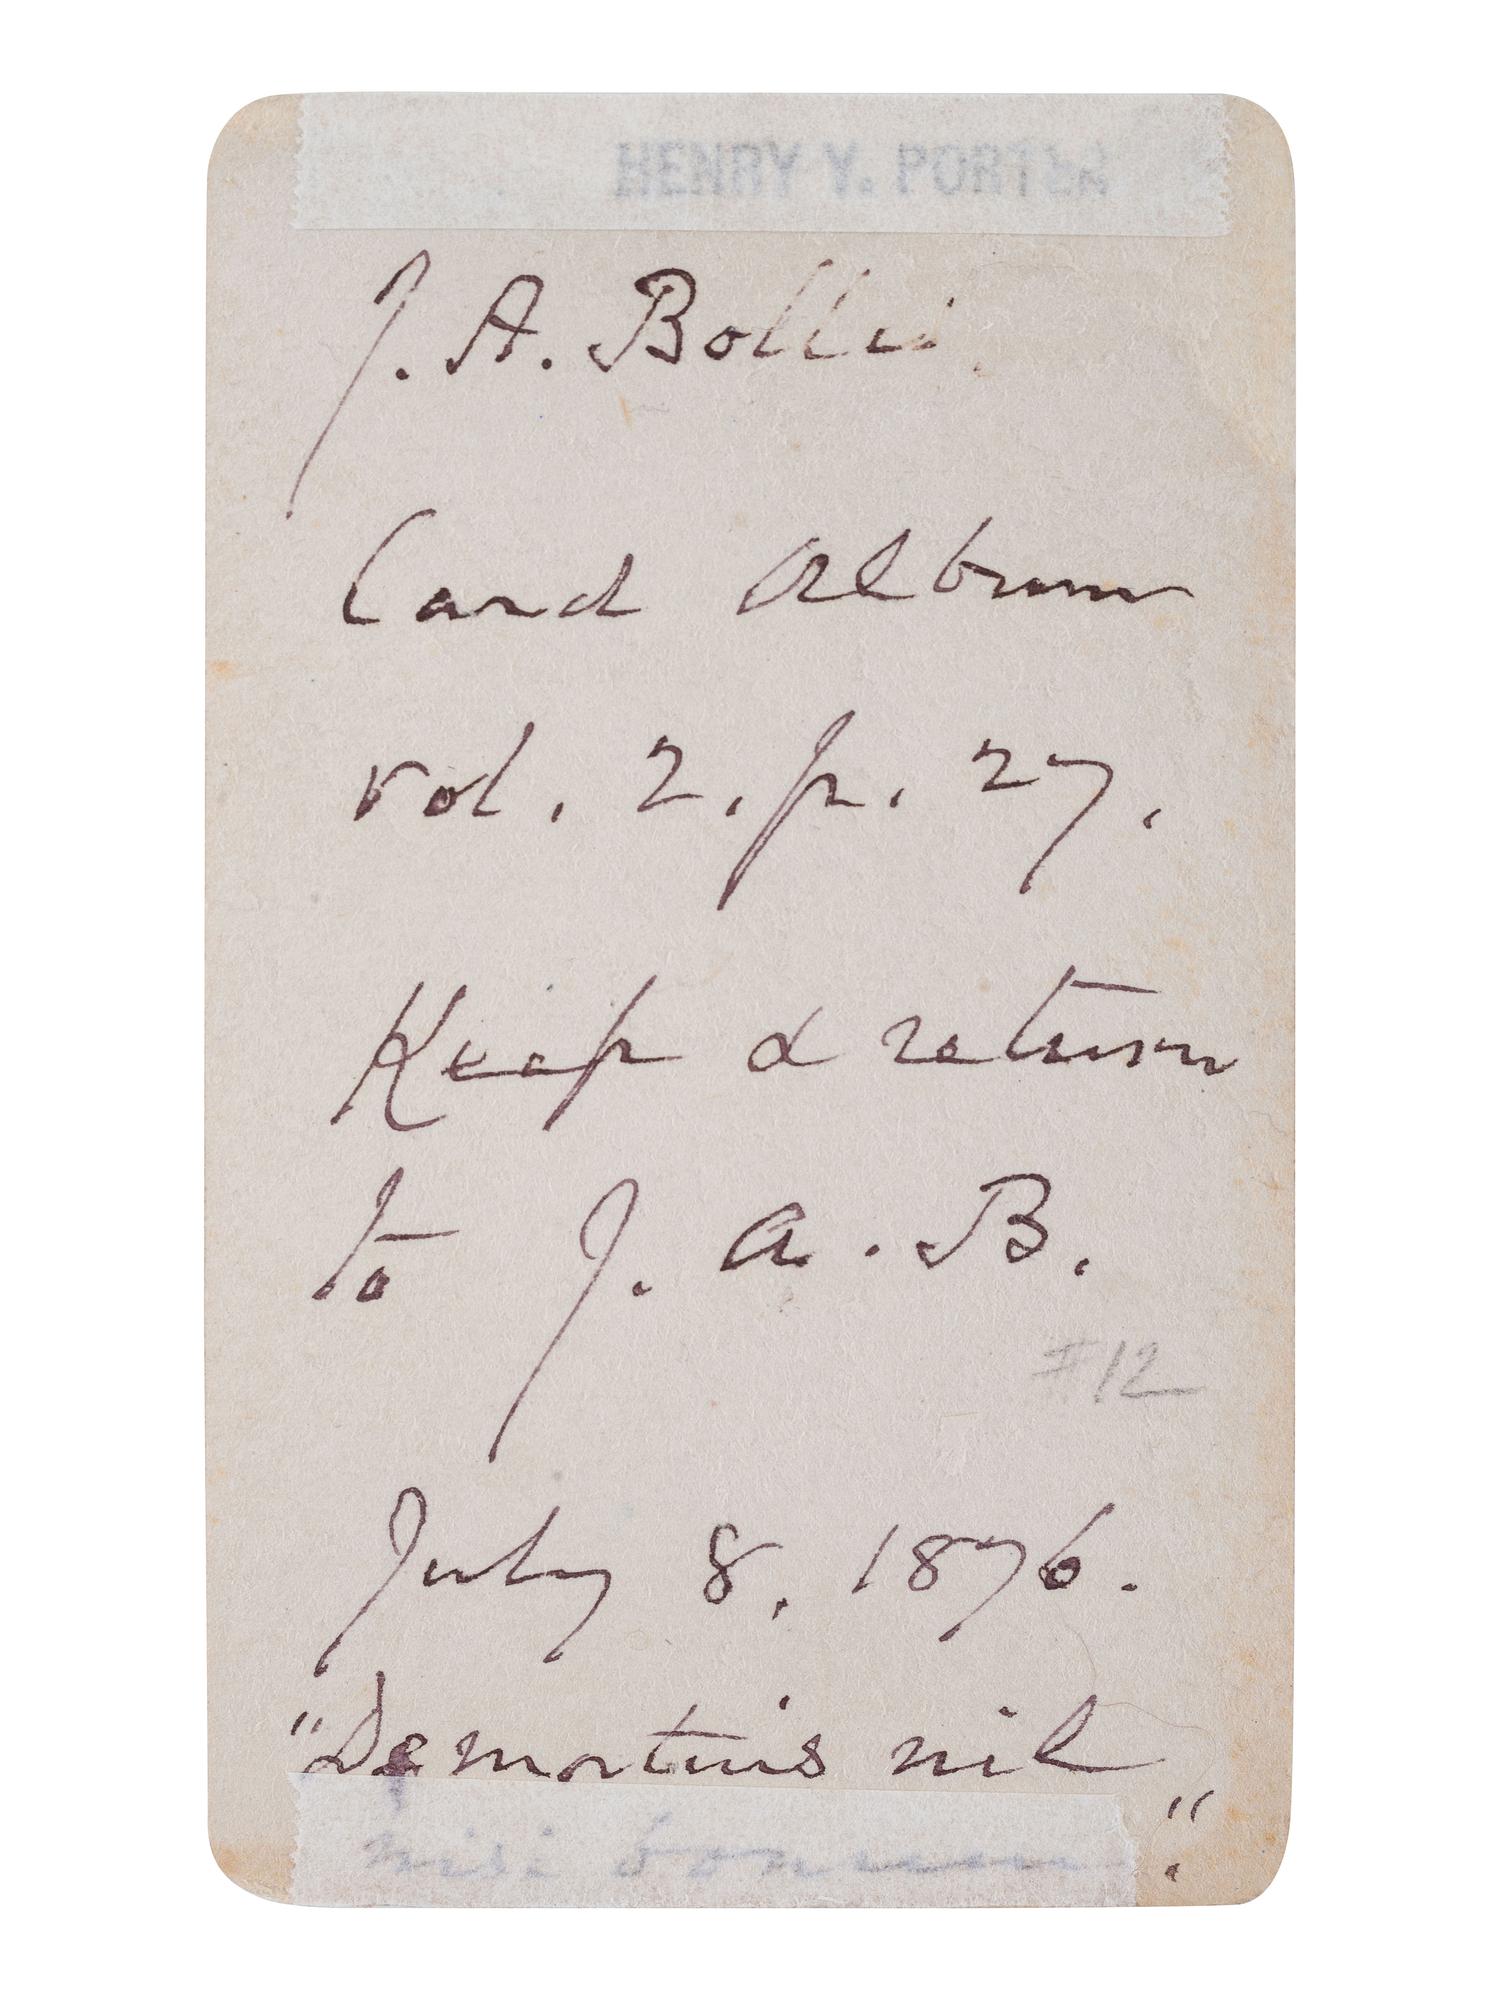 HENRY Y. PORTER
J. A. Bolles.
Card Album
vol. 2. p. 27.
Keep & return
to J. A. B.
#12
July 8, 1876.
"De mortuis nil
nisi bonum."